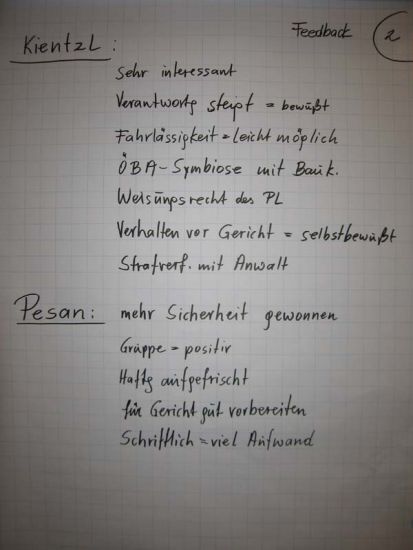 Feedback 2
Kientzl:
Sehr interessant
Verantwortg steigt = bewußt
Fahrlässigkeit = leicht möglich
ÖBA-Symbiose mit Bauk.
Weisungsrecht des PL
Verhalten vor Gericht = selbstbewußt
Strafverf. mit Anwalt
Pesan: mehr Sicherheit gewonnen
Gruppe = positiv
Haftg aufgefrischt
für Gericht gut vorbereiten
Schriftlich = viel Aufwand